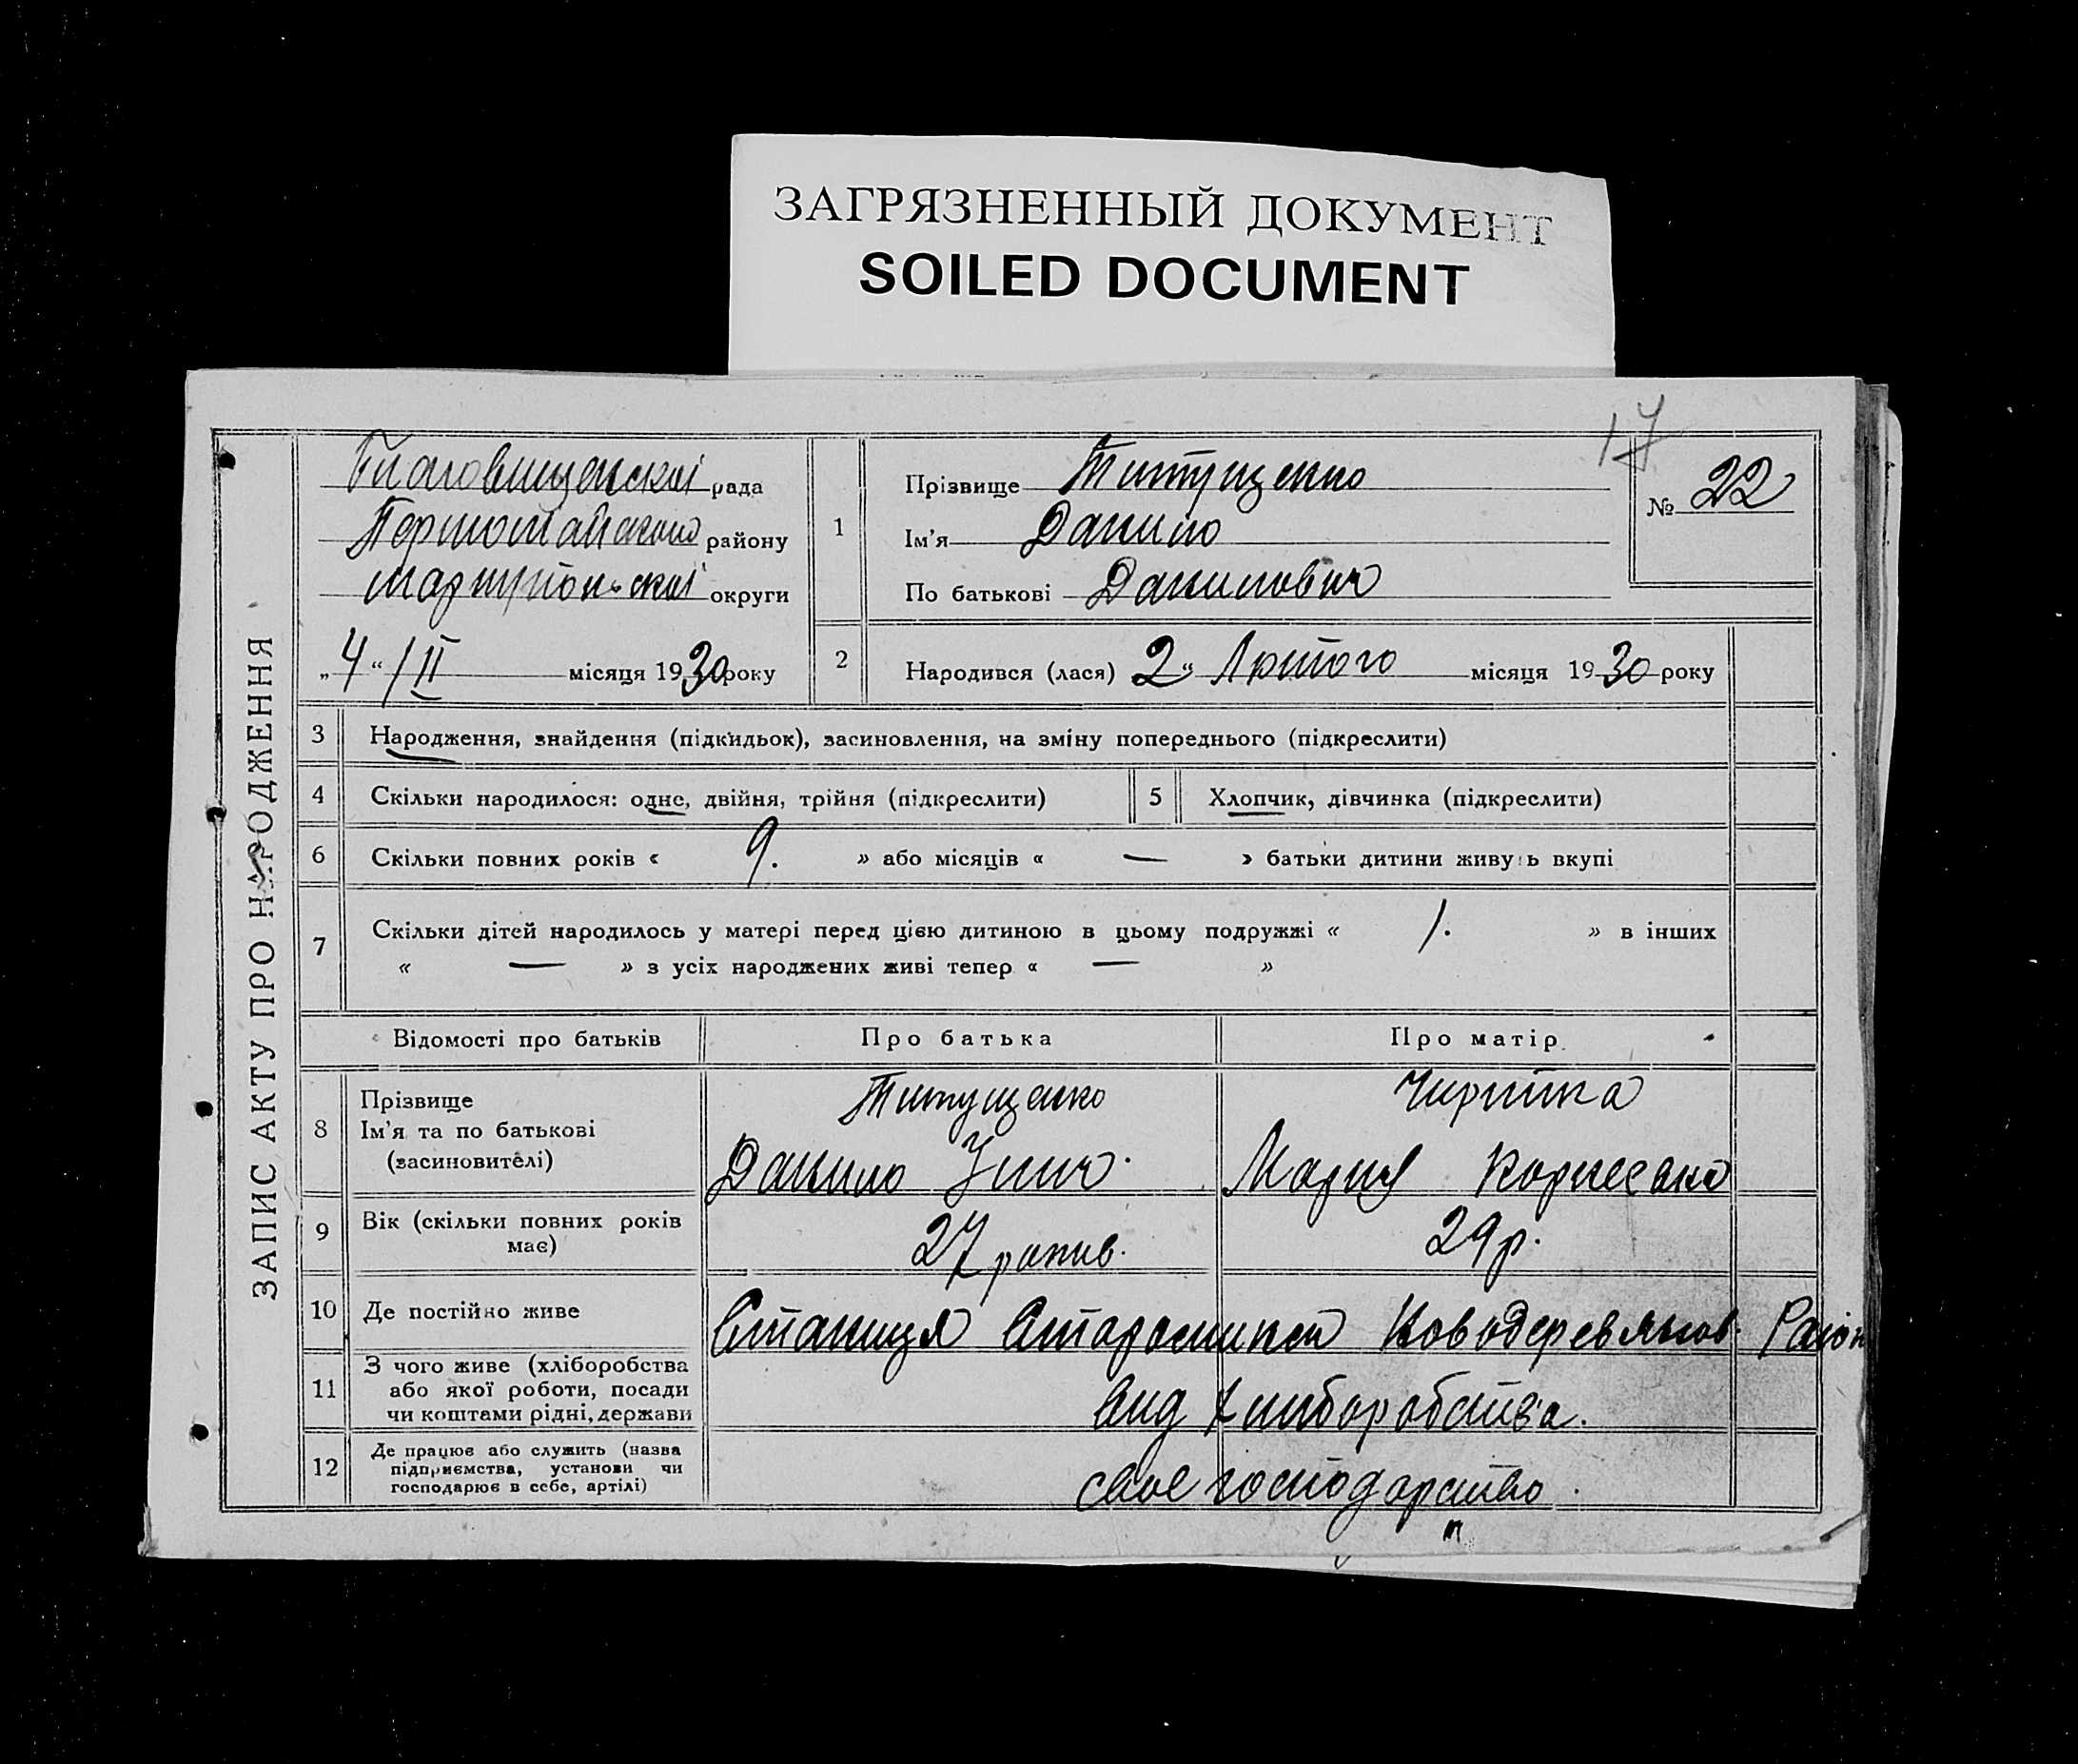 ЗАГРЯЗНЕННЫЙ ДОКУМЕНТ
SOILED DOCUMENT
17
ЗАПИС АКТУ ПРО НАРОДЖЕННЯ
рада
району
округи
„4“/II місяця 1930 року
1 Прізвище Титущенко
Ім’я Данило
По батькові Данилович
№ 22
2 Народився (лася) 2 „ Лютого місяця 1930 року
3 Народження, знайдення (підкидьок), засиновлення, на зміну попереднього (підкреслити)
4 Скільки народилося: одне, двійня, трійня (підкреслити)
5 Хлопчик, дівчинка (підкреслити)
6 Скільки повних років « 9. » або місяців « — » батьки дитини живуть вкупі
7 Скільки дітей народилось у матері перед цією дитиною в цьому подружжі « 1. » в інших
« — » з усіх народжених живі тепер « — »
Відомості про батьків Про батька Про матір
8 Прізвище
Ім’я та по батькові
(засиновителі)
Титущенко
Данило
Мария
9 Вік (скільки повних років
має)
27 рокив.
29 р.
10 Де постійно живе
Станиця Новодеревянков. Район
11 З чого живе (хліборобства
або якої роботи, посади
чи коштами рідні, держави
вид хлиборобства.
12 Де працює або служить (назва
підприємства, установи чи
господарює в себе, артілі)
свое господарство